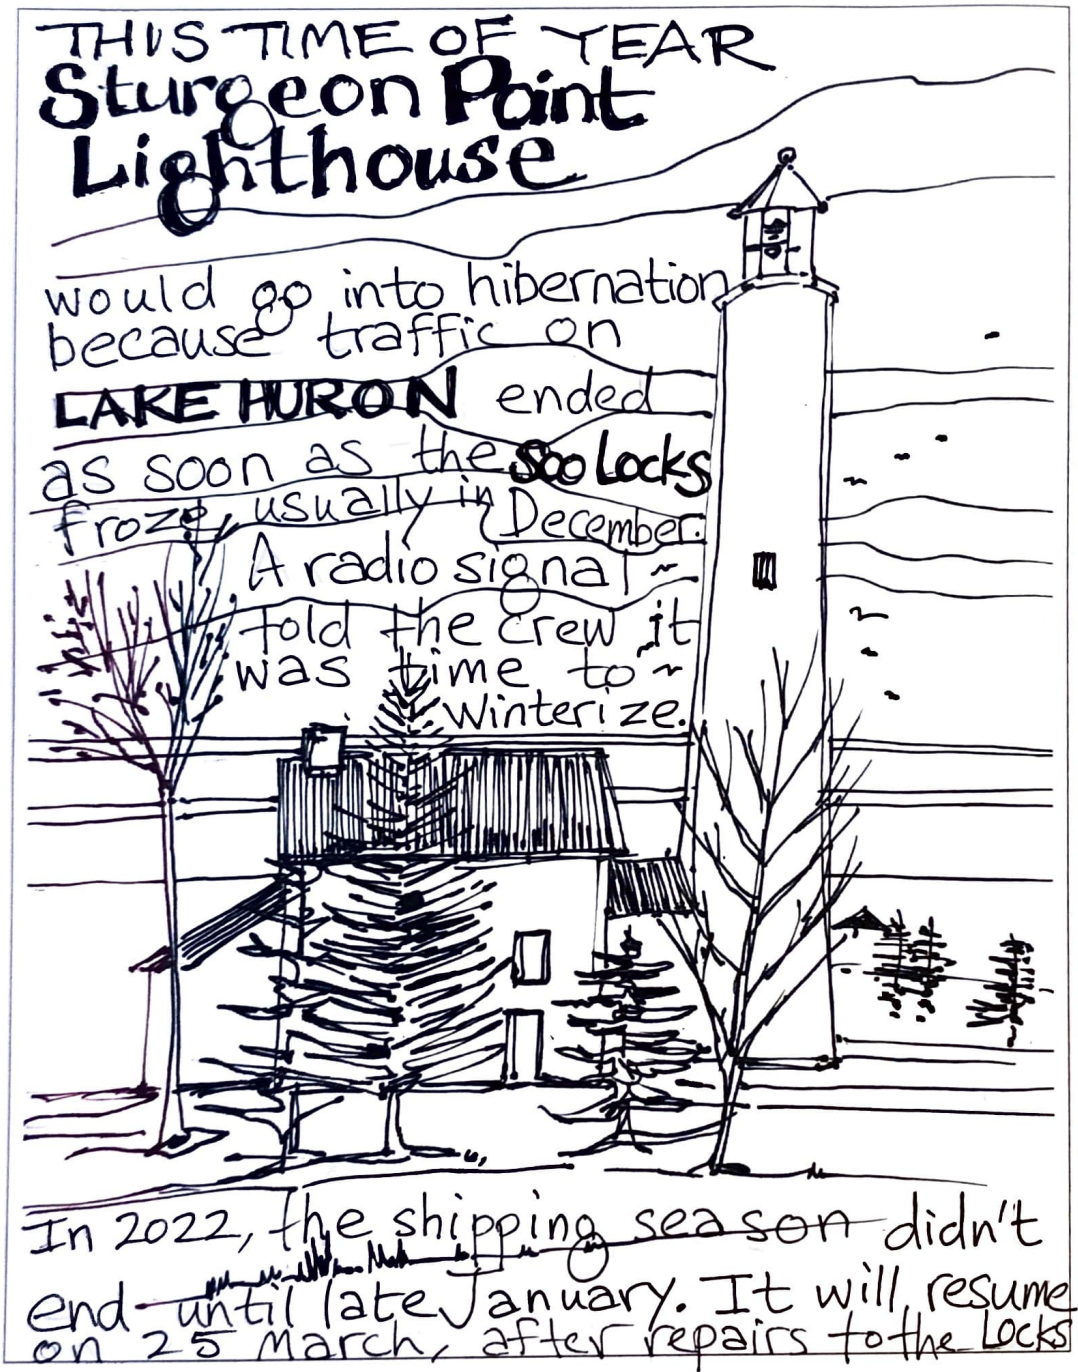 THIS TIME OF YEAR
Sturgeon Point
Lighthouse
would go into hibernation
because traffic on
LAKE HURON ended
as soon as the Soo Locks
froze, usually in December.
A radio signal
told the crew it
was time to
winterize.
In 2022, the shipping season didn't
end until late January. It will resume
on 25 March, after repairs to the Locks